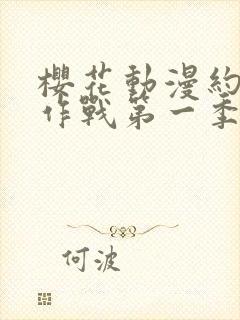 櫻花動漫約
作戰第一季
何波